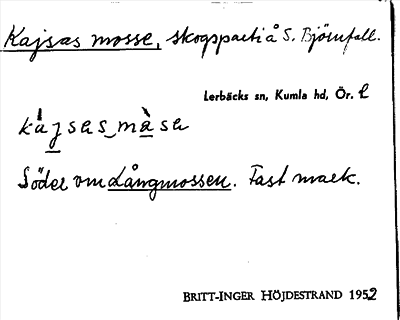 Kajsas mosse, skogsparti å S. Björnfall.
Lerbäcks sn, Kumla hd, Ör. l
kàjsas_màsa
Söder om Långmossen. Fast mark.
BRITT-INGER HÖJDESTRAND 1952